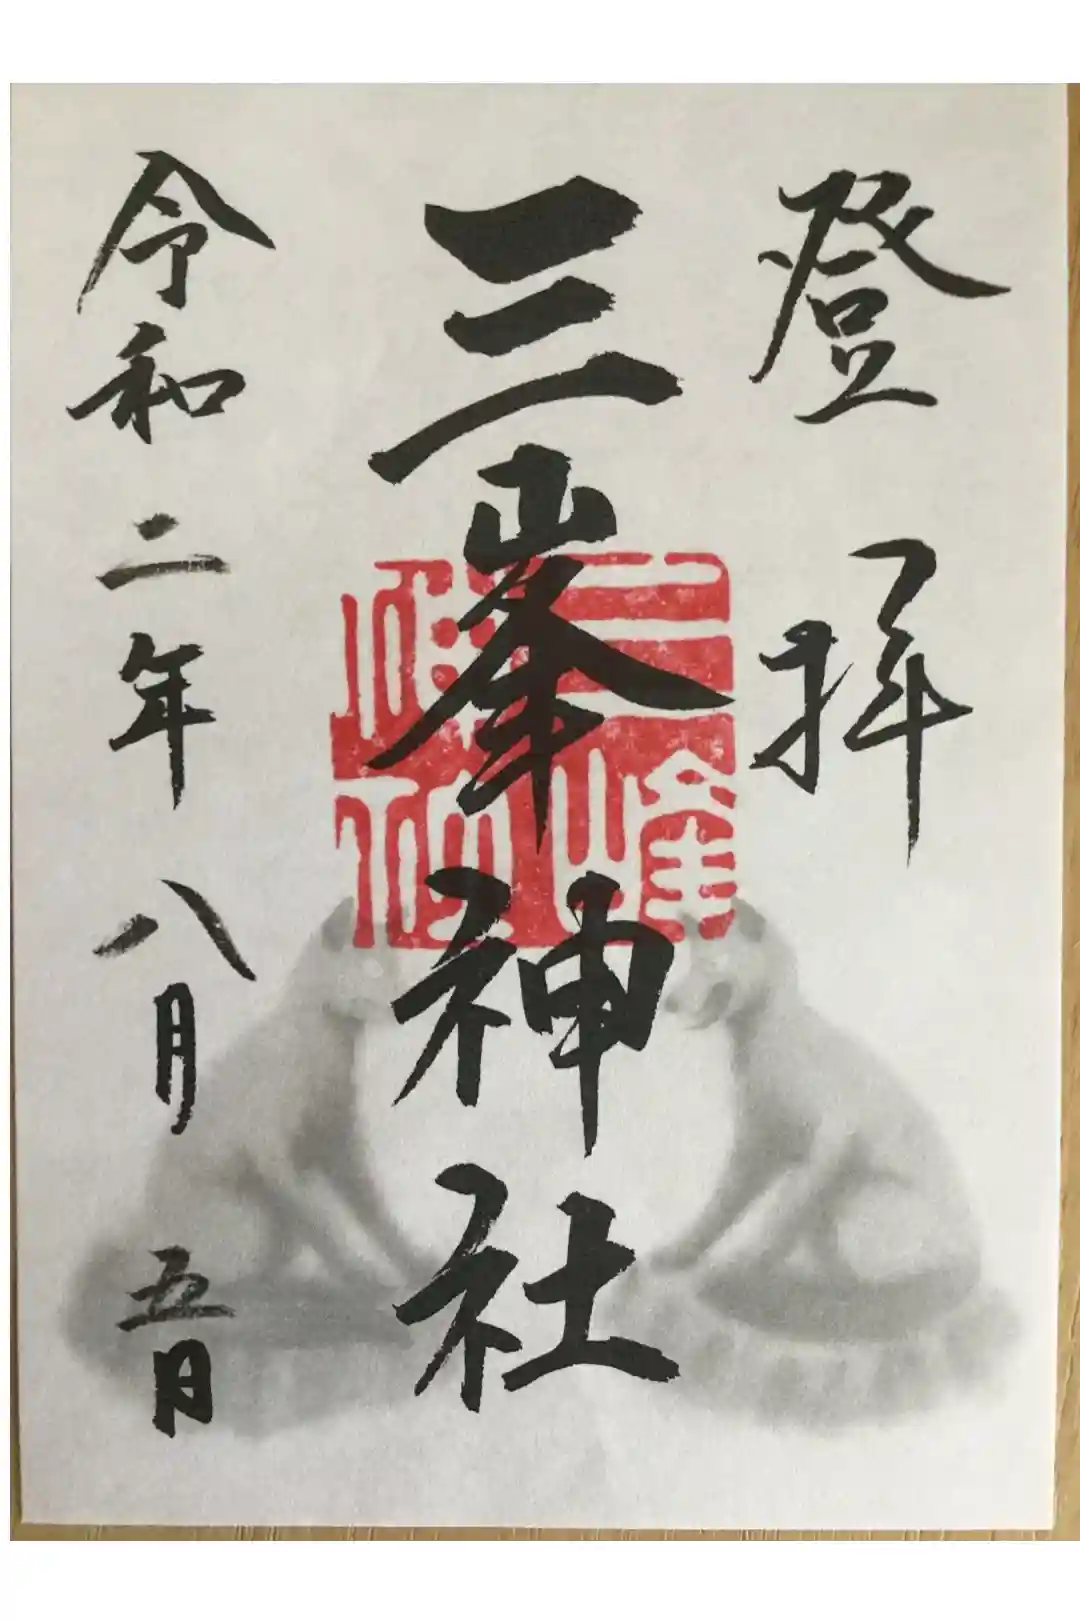 登拝
三峯神社
令和二年八月五日